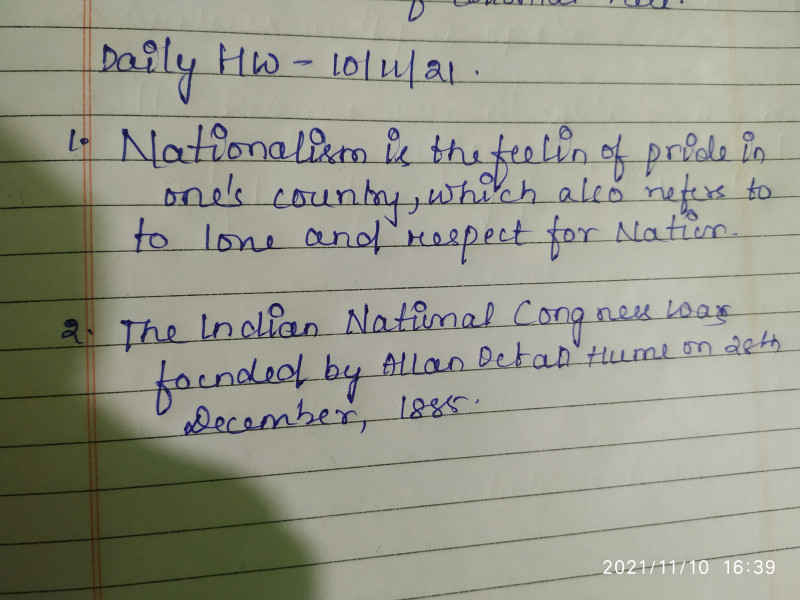 Daily HW - 10/11/21.
1. Nationalism is the feelin of pride in
one's country, which also refers to
to lone and respect for Nation.
2. The Indian National Congress was
founded by Allan Octan Hume on 28th
December, 1885.
2021/11/10 16:39